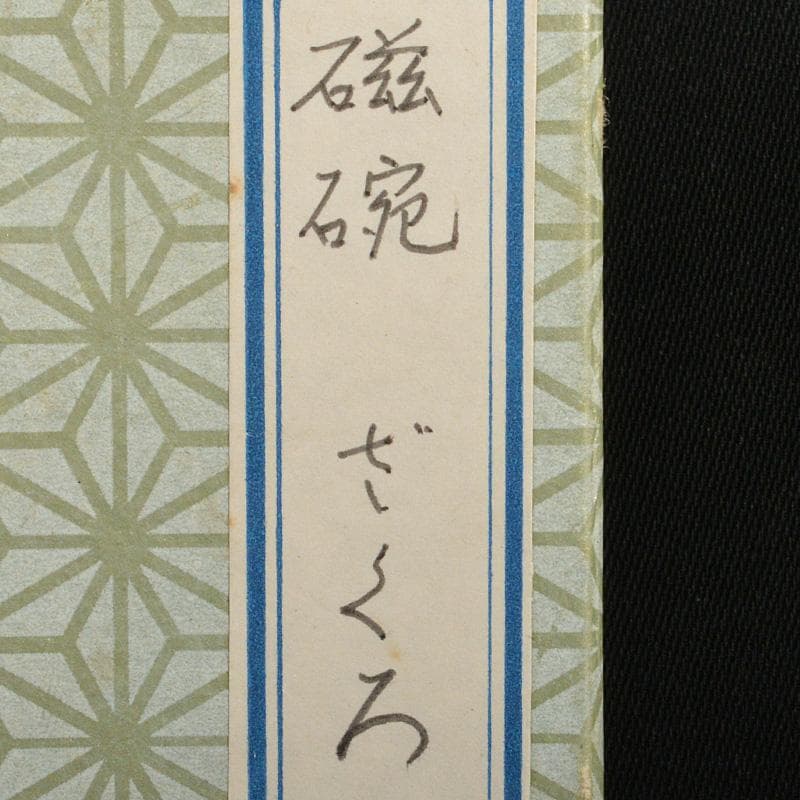 磁碗 ざくろ